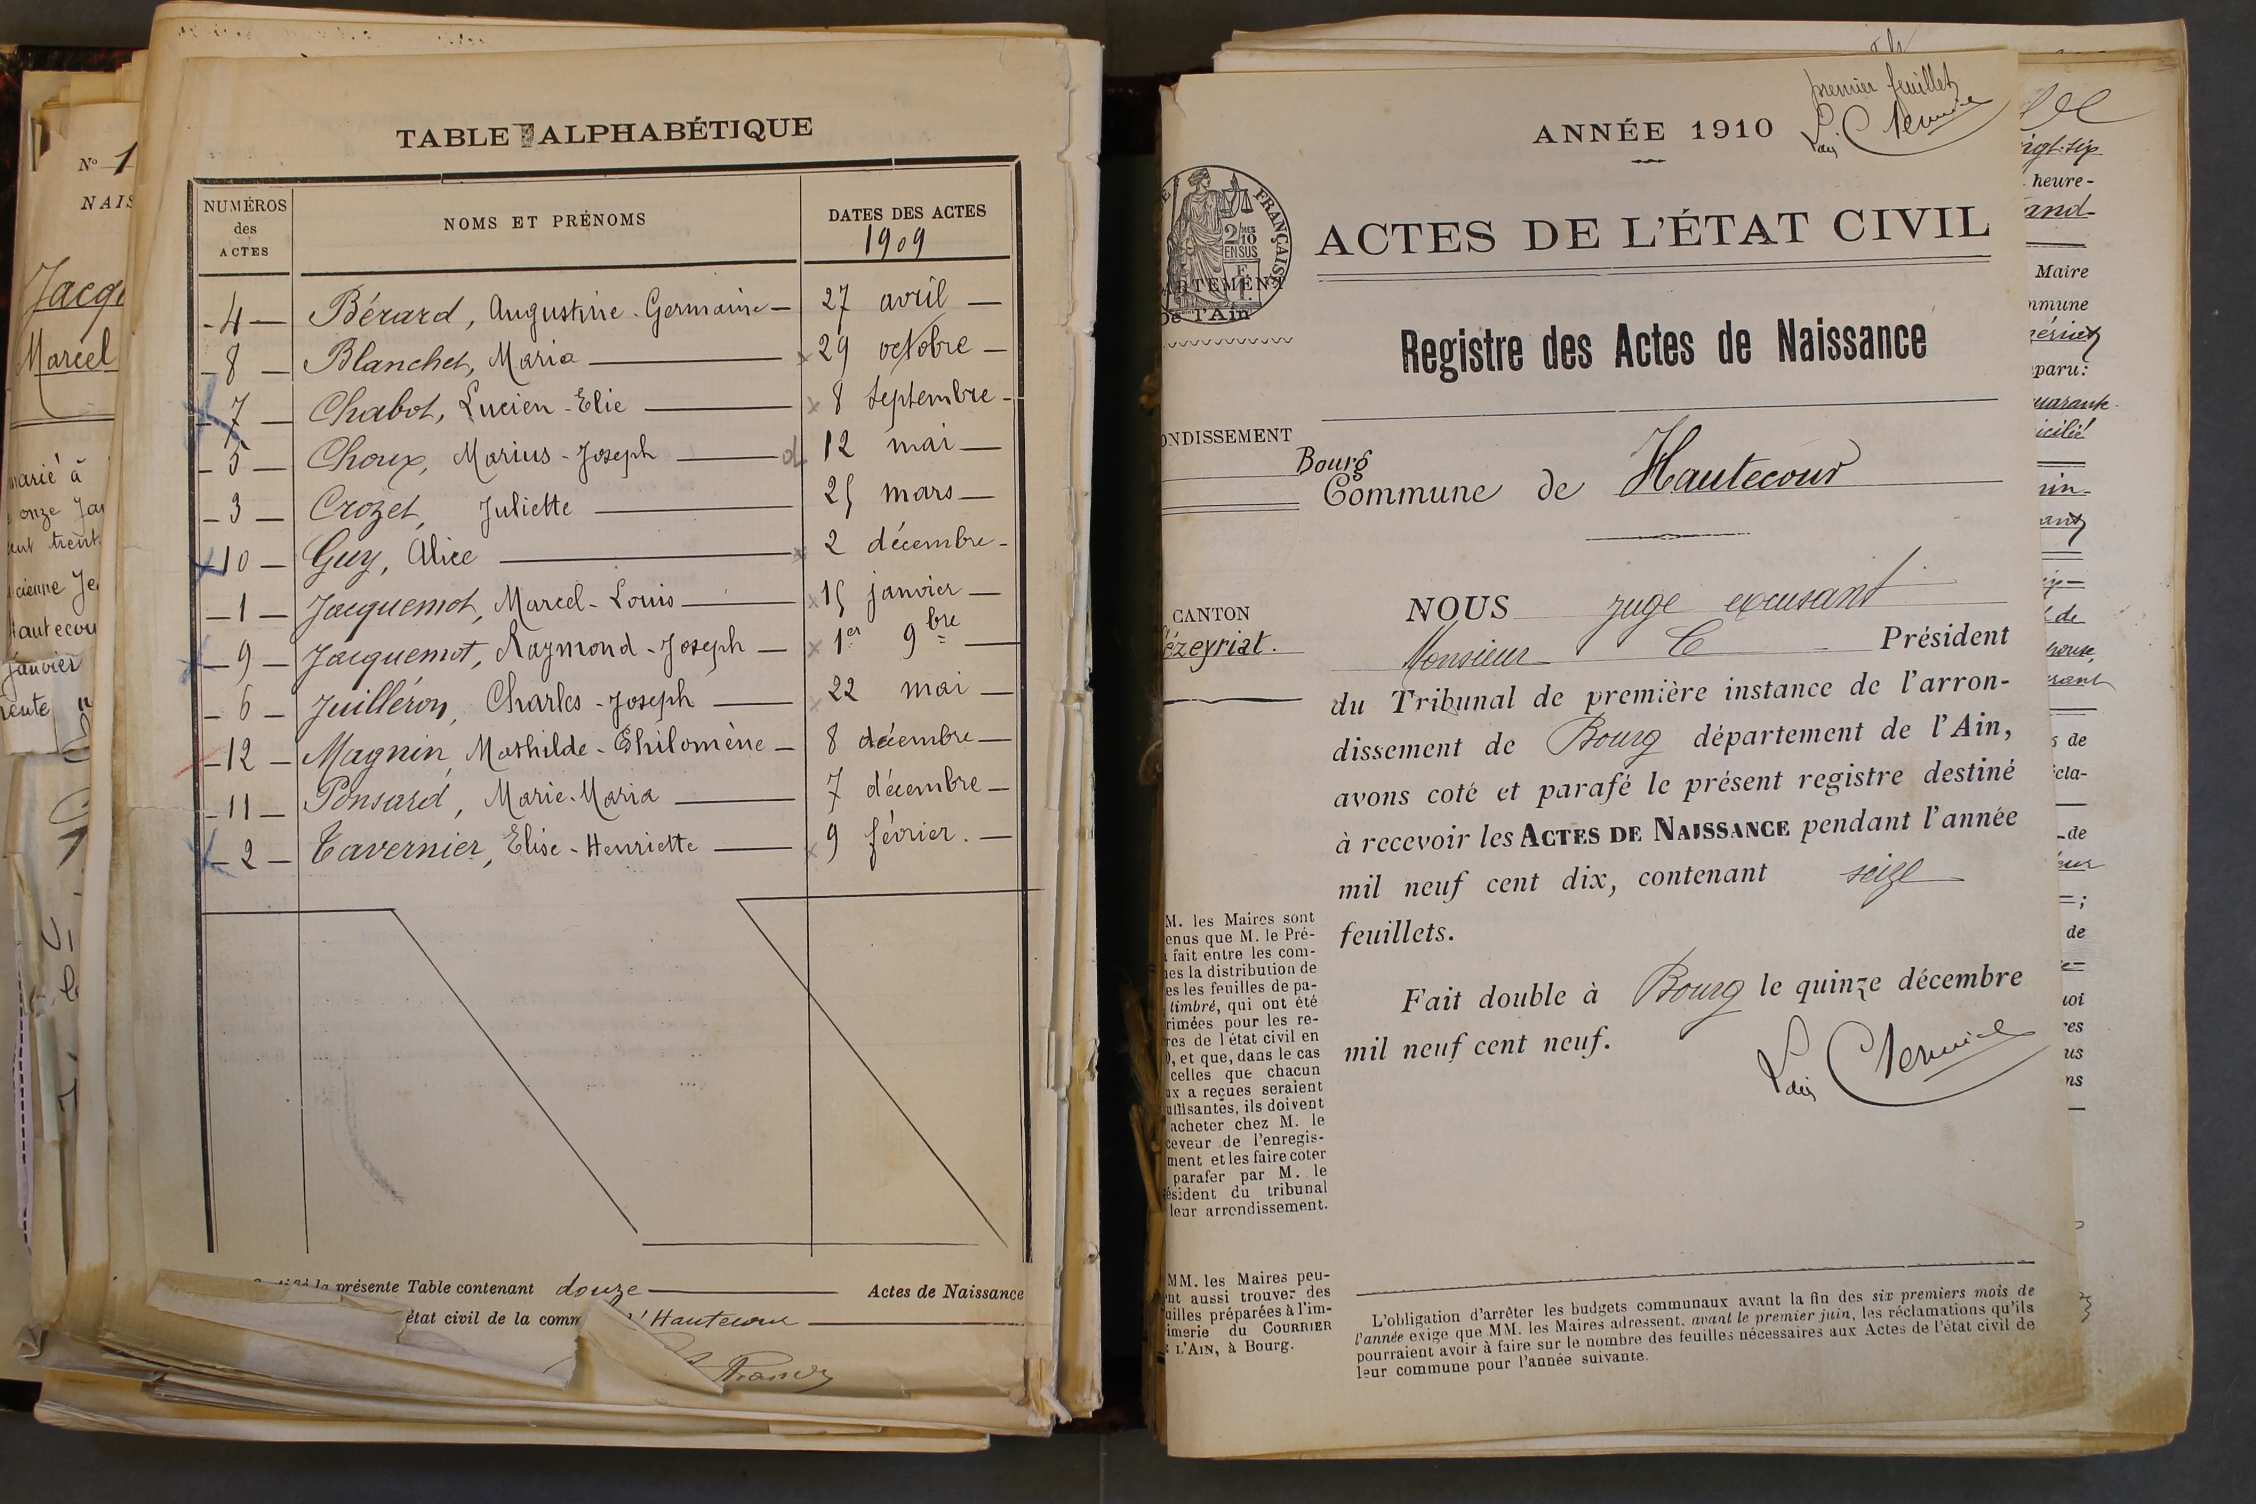 TABLE ALPHABÉTIQUE
NUMÉROS des ACTES
NOMS ET PRÉNOMS
DATES DES ACTES
1909
4 Bérard, Augustine-Germaine 27 avril
8 Blanchet, Maria 29 octobre
7 Chabot, Lucien-Elie 8 septembre
5 Choux, Marius-Joseph 12 mai
3 Crozet, Juliette 25 mars
10 Guy, Alice 2 décembre
1 Jacquemot, Marcel-Louis 15 janvier
9 Jacquemot, Raymond-Joseph 1er 9bre
6 Juilléron, Charles-Joseph 22 mai
12 Magnin, Mathilde-Philomène 8 décembre
11 Ponsard, Marie-Maria 7 décembre
2 Tavernier, Elise-Henriette 9 février.
la présente Table contenant douze Actes de Naissance
état civil de la comm d'Hautecour
N° 1
NAIS
Jacq
Marcel
marié à
onze Jan
cienne Je
Hautecou
janvier
premier feuillet
ANNÉE 1910
FRANÇAISE
2/10 EN SUS
ARTEMENT
De l'Ain
ACTES DE L'ÉTAT CIVIL
Registre des Actes de Naissance
ONDISSEMENT
Bourg
Commune de Hautecour
CANTON
ézeyriat.
NOUS juge excusant
Monsieur le Président
du Tribunal de première instance de l'arron-
dissement de Bourg département de l'Ain,
avons coté et parafé le présent registre destiné
à recevoir les ACTES DE NAISSANCE pendant l'année
mil neuf cent dix, contenant seize
feuillets.
Fait double à Bourg le quinze décembre
mil neuf cent neuf.
M. les Maires sont
enus que M. le Pré-
fait entre les com-
es la distribution de
es les feuilles de pa-
timbré, qui ont été
rimées pour les re-
res de l'état civil en
), et que, dans le cas
celles que chacun
ux a reçues seraient
uffisantes, ils doivent
acheter chez M. le
ceveur de l'enregis-
ment et les faire coter
parafer par M. le
ésident du tribunal
leur arrondissement.
MM. les Maires peu-
nt aussi trouver des
uilles préparées à l'im-
imerie du COURRIER
L'AIN, à Bourg.
L'obligation d'arrêter les budgets communaux avant la fin des six premiers mois de
l'année exige que MM. les Maires adressent, avant le premier juin, les réclamations qu'ils
pourraient avoir à faire sur le nombre des feuilles nécessaires aux Actes de l'état civil de
leur commune pour l'année suivante.
heure-
Maire
mmune
paru:
quarante-
icilié
de
de
cla-
de
de
uoi
res
us
ns